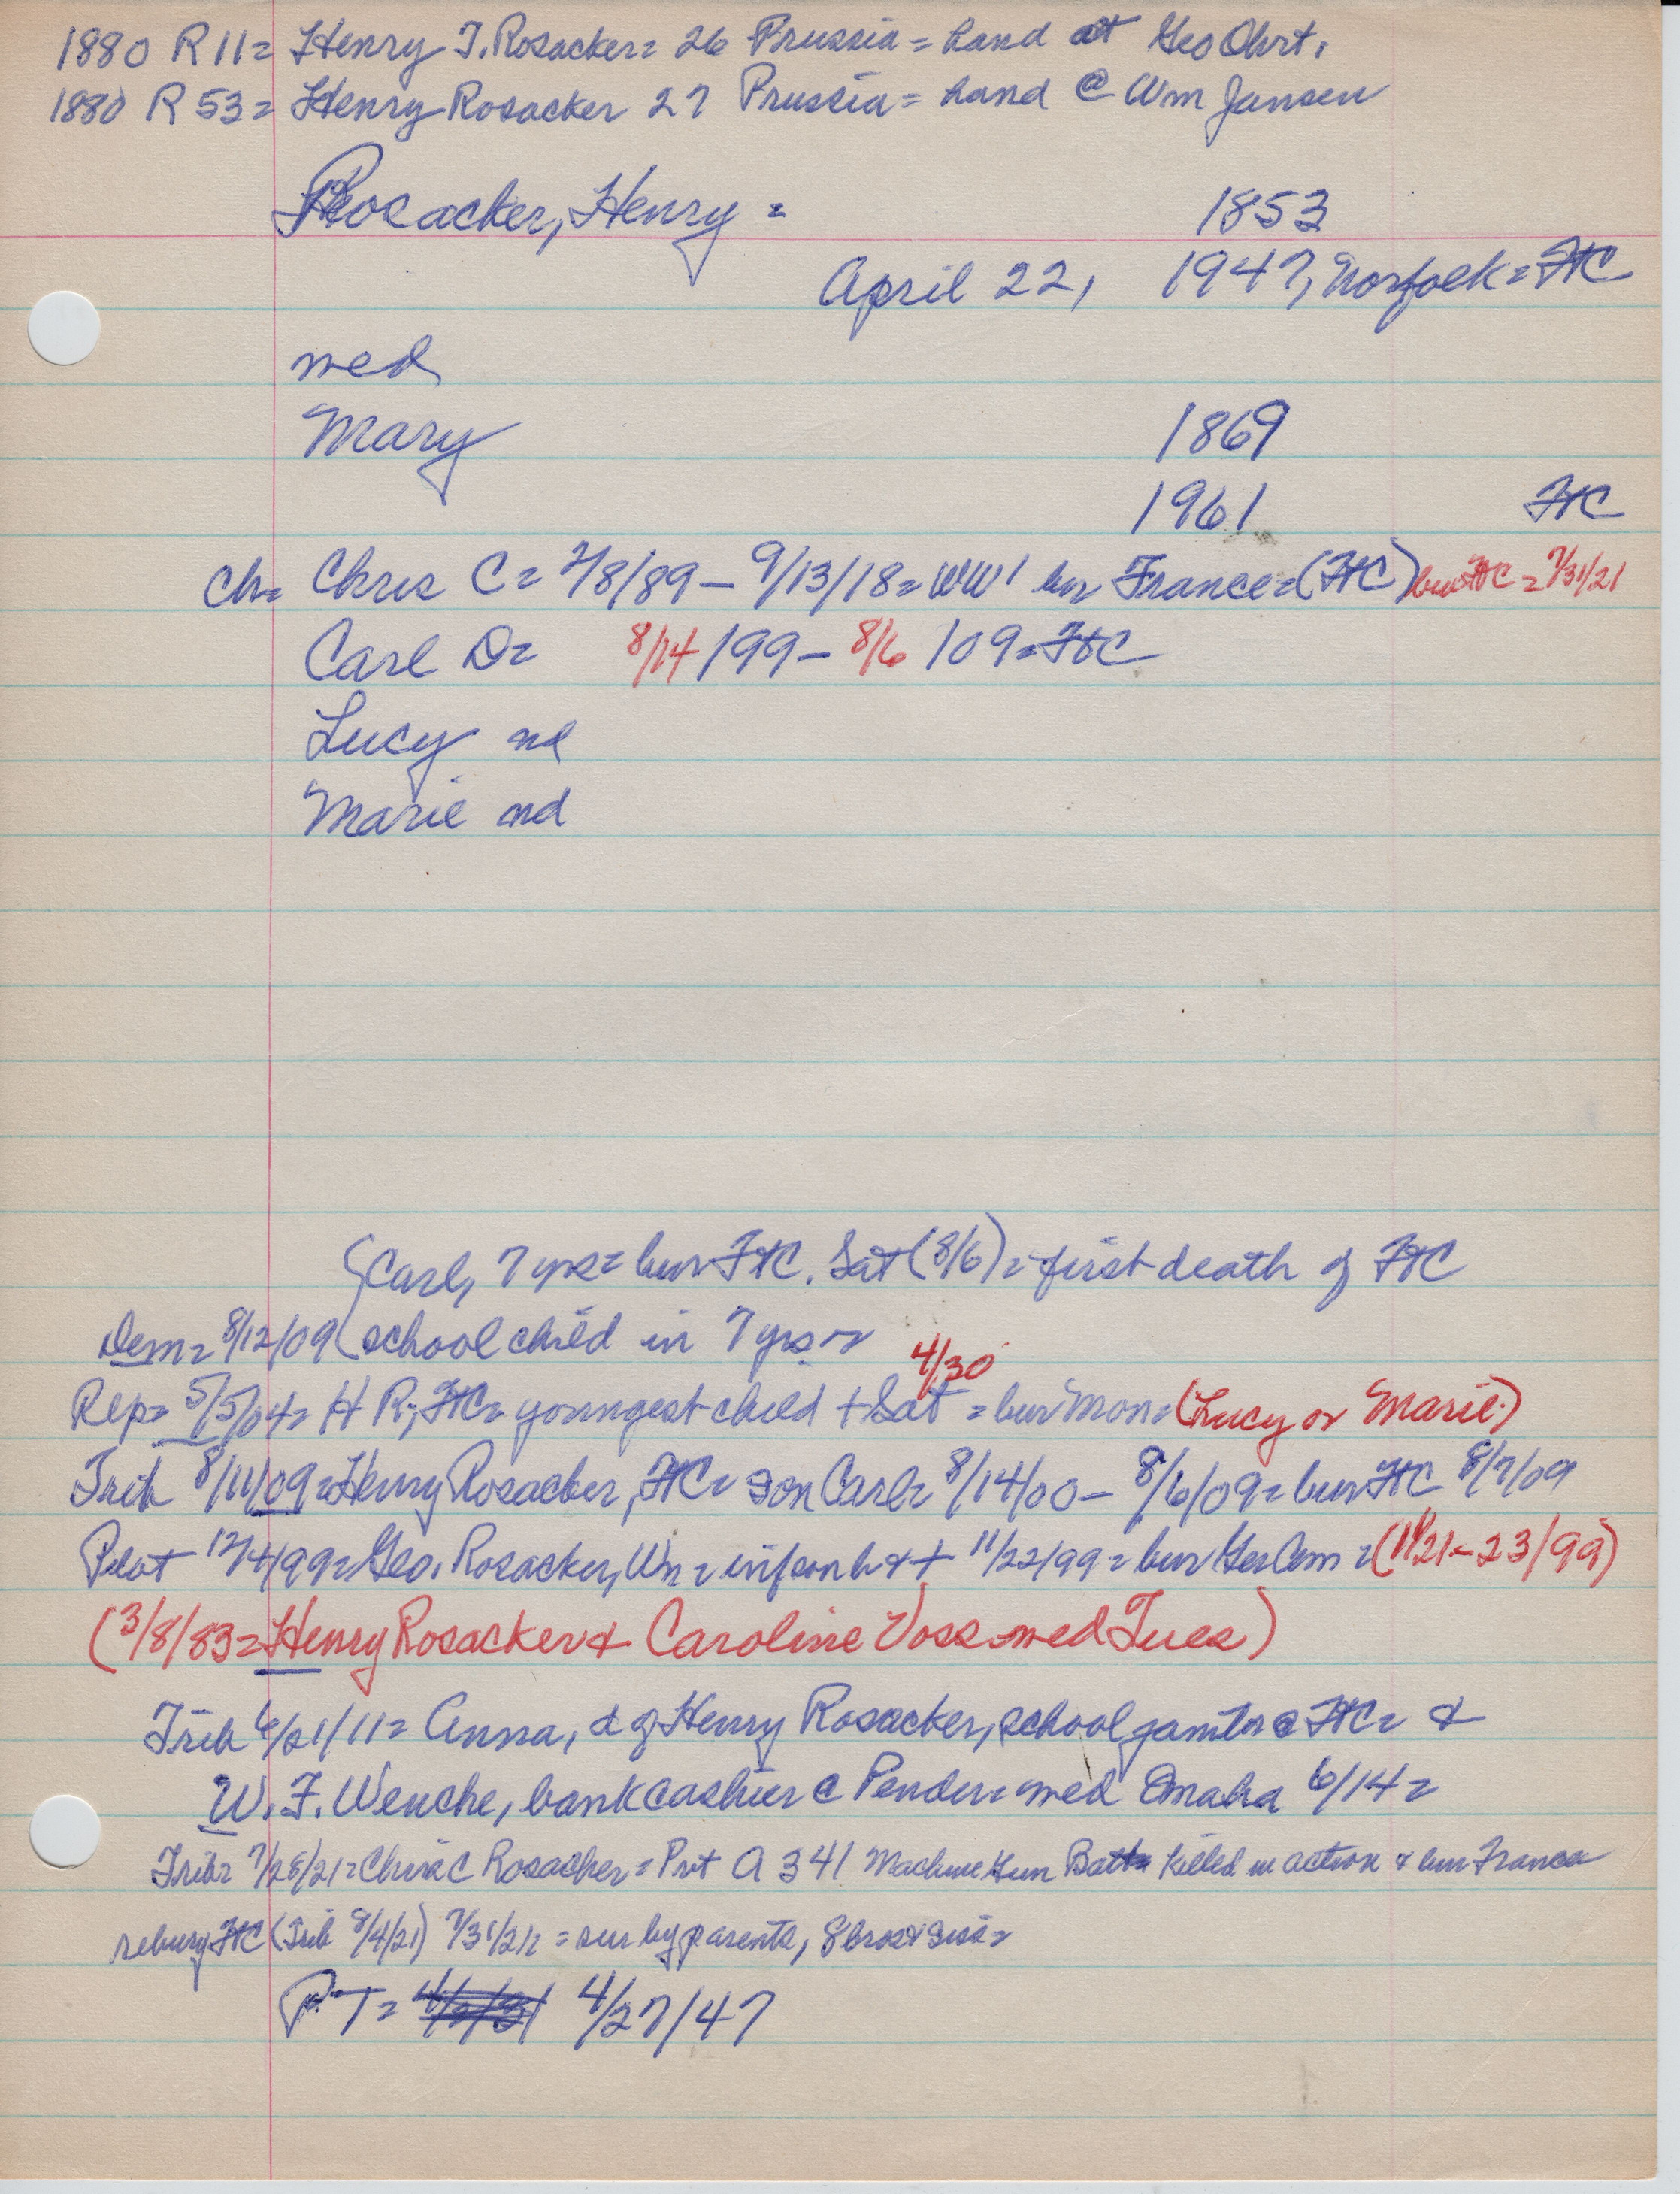 1880 R 11 = Henry J. Rosacker = 26 Prussia = hand at Geo Ohrt.
1880 R 53 = Henry Rosacker 27 Prussia = hand @ Wm Jansen
Rosacker, Henry = 1853
April 22, 1947, Norfolk = FtC
med
Mary 1869
1961 FtC
ch = Chris C = 2/8/89 - 9/13/18 = WW1 bur France = (FtC) bur FtC = 7/31/21
Carl D = 8/14/99 - 8/6/09 = FtC
Lucy nd
Marie nd
Carl, 7 yrs = bur FtC. Sat (8/6) = first death of FtC
Dem = 8/12/09 school child in 7 yrs =
4/30
Rep = 5/5/04 = H R, FtC = youngest child + Sat = bur Mon = (Lucy or Marie.)
Trib 8/11/09 = Henry Rosacker, FtC = son Carl = 8/14/00 - 8/6/09 = bur FtC 8/7/09
Pilot 12/4/99 = Geo. Rosacker, Wn = inf son b & + 11/22/99 = bur Ger Cem = (11/21-23/99)
(3/8/83 = Henry Rosacker & Caroline Voss med Tues)
Trib 6/21/11 = Anna, d of Henry Rosacker, school janitor @ FtC = &
W. F. Wenche, bank cashier @ Pender = med Omaha 6/14 =
Trib = 7/28/21 = Chris C Rosacker = Pvt A 341 Machine Gun Battn Killed in action & bur France
rebury FtC (Trib 8/4/21) 7/31/21 = sur by parents, 8 bros & siss =
PT = 4/27/47